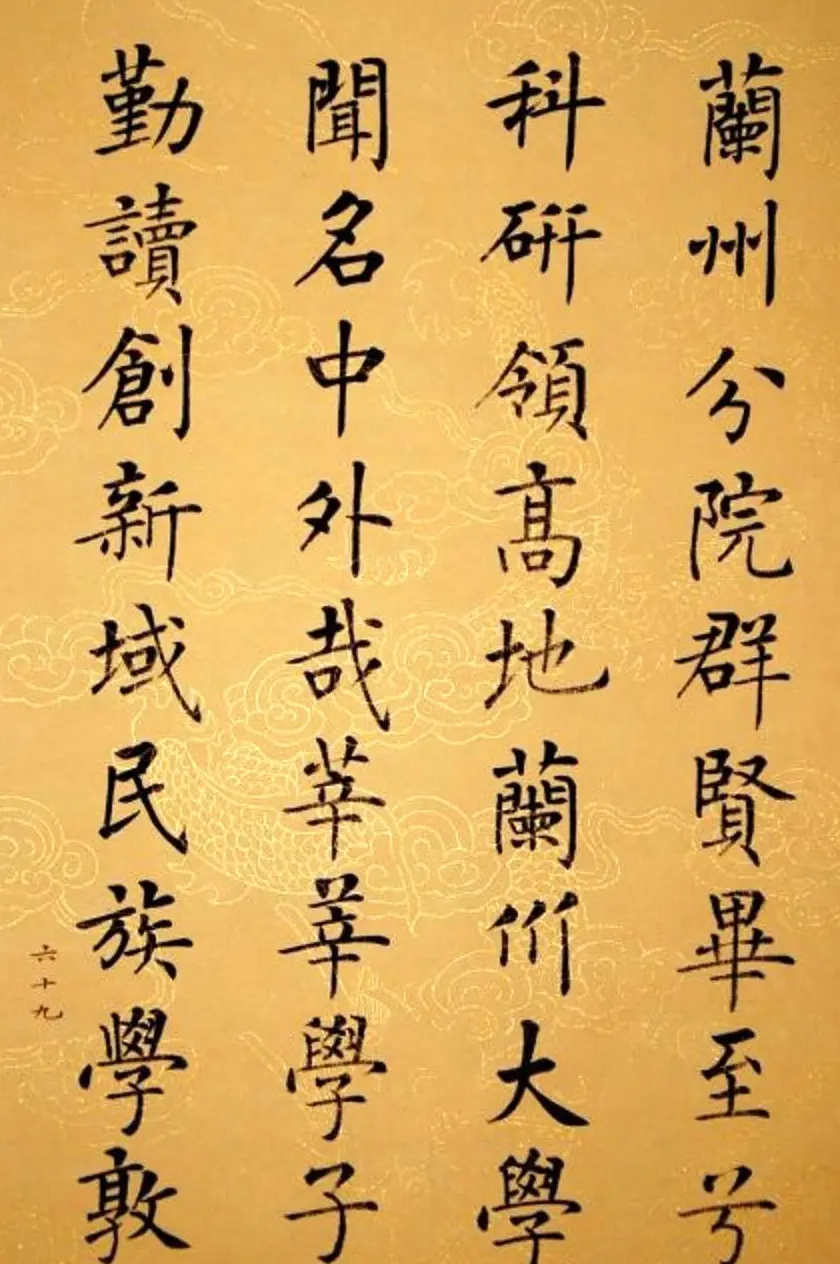 蘭州分院群賢畢至兮
科研領高地蘭州大學
聞名中外哉莘莘學子
勤讀創新域民族學敦
六十九